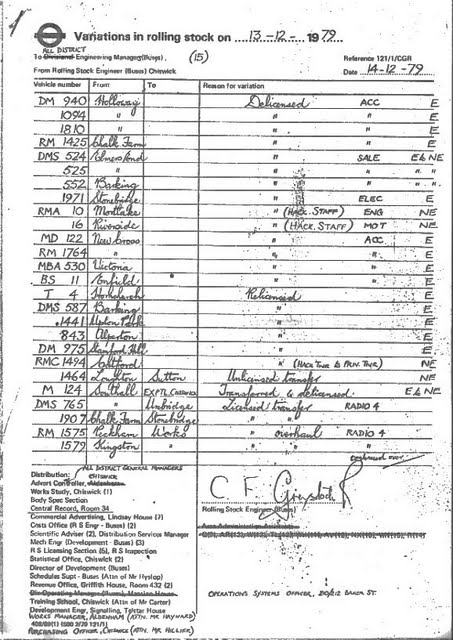 Variations in rolling stock on 13-12- 1979
ALL DISTRICT
To Divisional Engineering Manager(Buses) (15)
Reference 121/1/CGR
From Rolling Stock Engineer (Buses) Chiswick
Date 14-12-79
Vehicle number From To Reason for variation
DM 940 Holloway Delicensed ACC E
1094 " " " E
1810 " " " E
RM 1425 Chalk Farm " " E
DMS 524 Elmers End " SALE E & NE
525 " " " " "
552 Barking " " " "
1971 Stonebridge " ELEC E
RMA 10 Mortlake " (HACK. STAFF) ENG NE
16 Riverside " (HACK. STAFF) MOT NE
MD 122 New Cross " ACC E
RM 1764 " " " E
MBA 530 Victoria " " E
BS 11 Enfield " " E
T 4 Hornchurch Relicensed E
DMS 587 Barking " E
1441 Upton Park " E
843 Alperton " E
DM 975 Stamford Hill " E
RMC 1494 Ashford " NE
1464 Loughton Sutton Unlicensed transfer NE
M 124 Southall EXPTL CHISWICK Transferred & delicensed E & NE
DMS 765 " Uxbridge Licensed transfer RADIO 4
1907 Chalk Farm Stonebridge " "
RM 1575 Peckham Works " overhaul RADIO 4
1579 Kingston " " "
continued over
Distribution: ALL DISTRICT GENERAL MANAGERS
CHISWICK
Advert Controller, Aldenham
Works Study, Chiswick (1)
Body Spec Section
Central Record, Room 34
Commercial Advertising, Lindsay House (7)
Costs Office (R S Engr - Buses) (2)
Scientific Adviser (2), Distribution Services Manager
Mech Engr (Development - Buses) (3)
R S Licensing Section (6), R S Inspection
Statistical Office, Chiswick (2)
Director of Development (Buses)
Schedules Supt - Buses (Attn of Mr Hyslop)
Revenue Office, Griffith House, Room 432 (2)
Div Operating Manager (Buses), Mansion House
Training School, Chiswick (Attn of Mr Carter)
Development Engr, Signalling, Telstar House
WORKS MANAGER, ALDENHAM (ATTN. MR HAYWARD)
PURCHASING OFFICER, CHISWICK (ATTN. MR HILLIER)
C F
Rolling Stock Engineer (Buses)
OPERATIONAL SYSTEMS OFFICER, 20/62 BAKER ST.